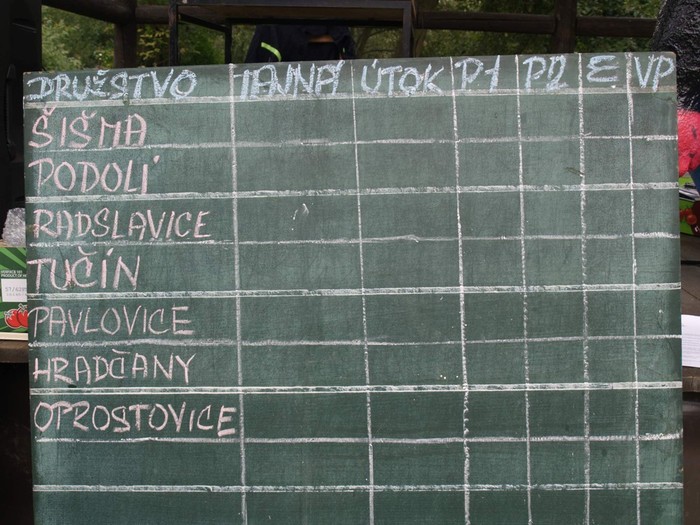 DRUŽSTVO JENNÁ ÚTOK P1 P2 Σ VP
ŠIŠMA
PODOLÍ
RADSLAVICE
TUČÍN
PAVLOVICE
HRADČANY
OPROSTOVICE